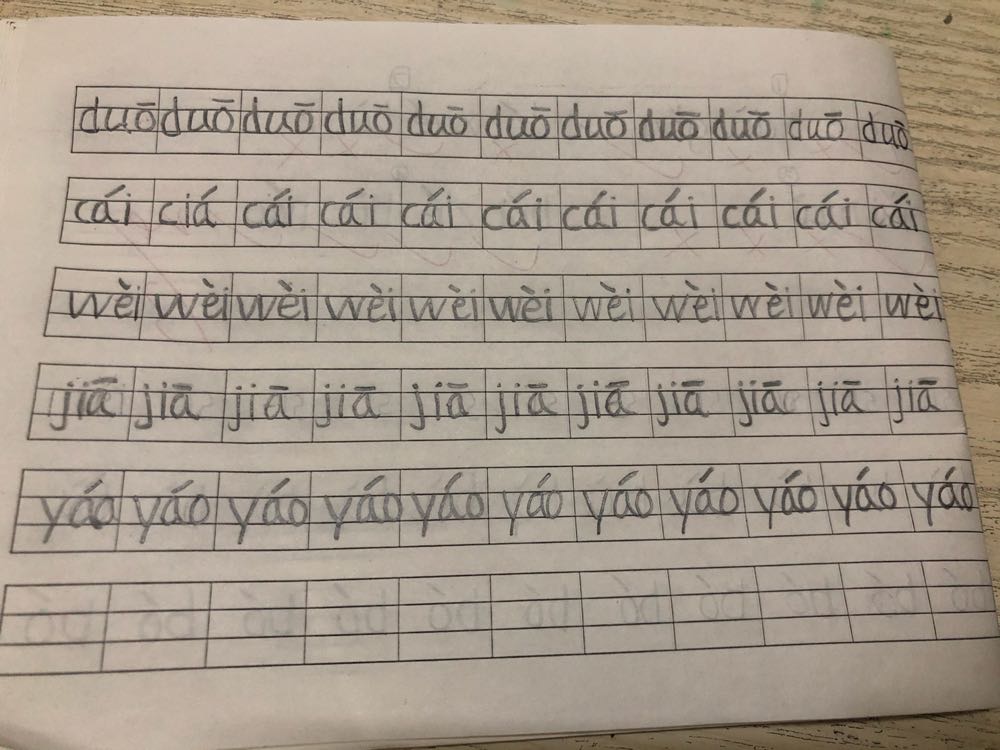 duō duō duō duō duō duō duō duō duō duō duō
cái ciá cái cái cái cái cái cái cái cái cái
wèi wèi wèi wèi wèi wèi wèi wèi wèi wèi wèi
jiā jiā jiā jiā jiā jiā jiā jiā jiā jiā jiā
yáo yáo yáo yáo yáo yáo yáo yáo yáo yáo yáo